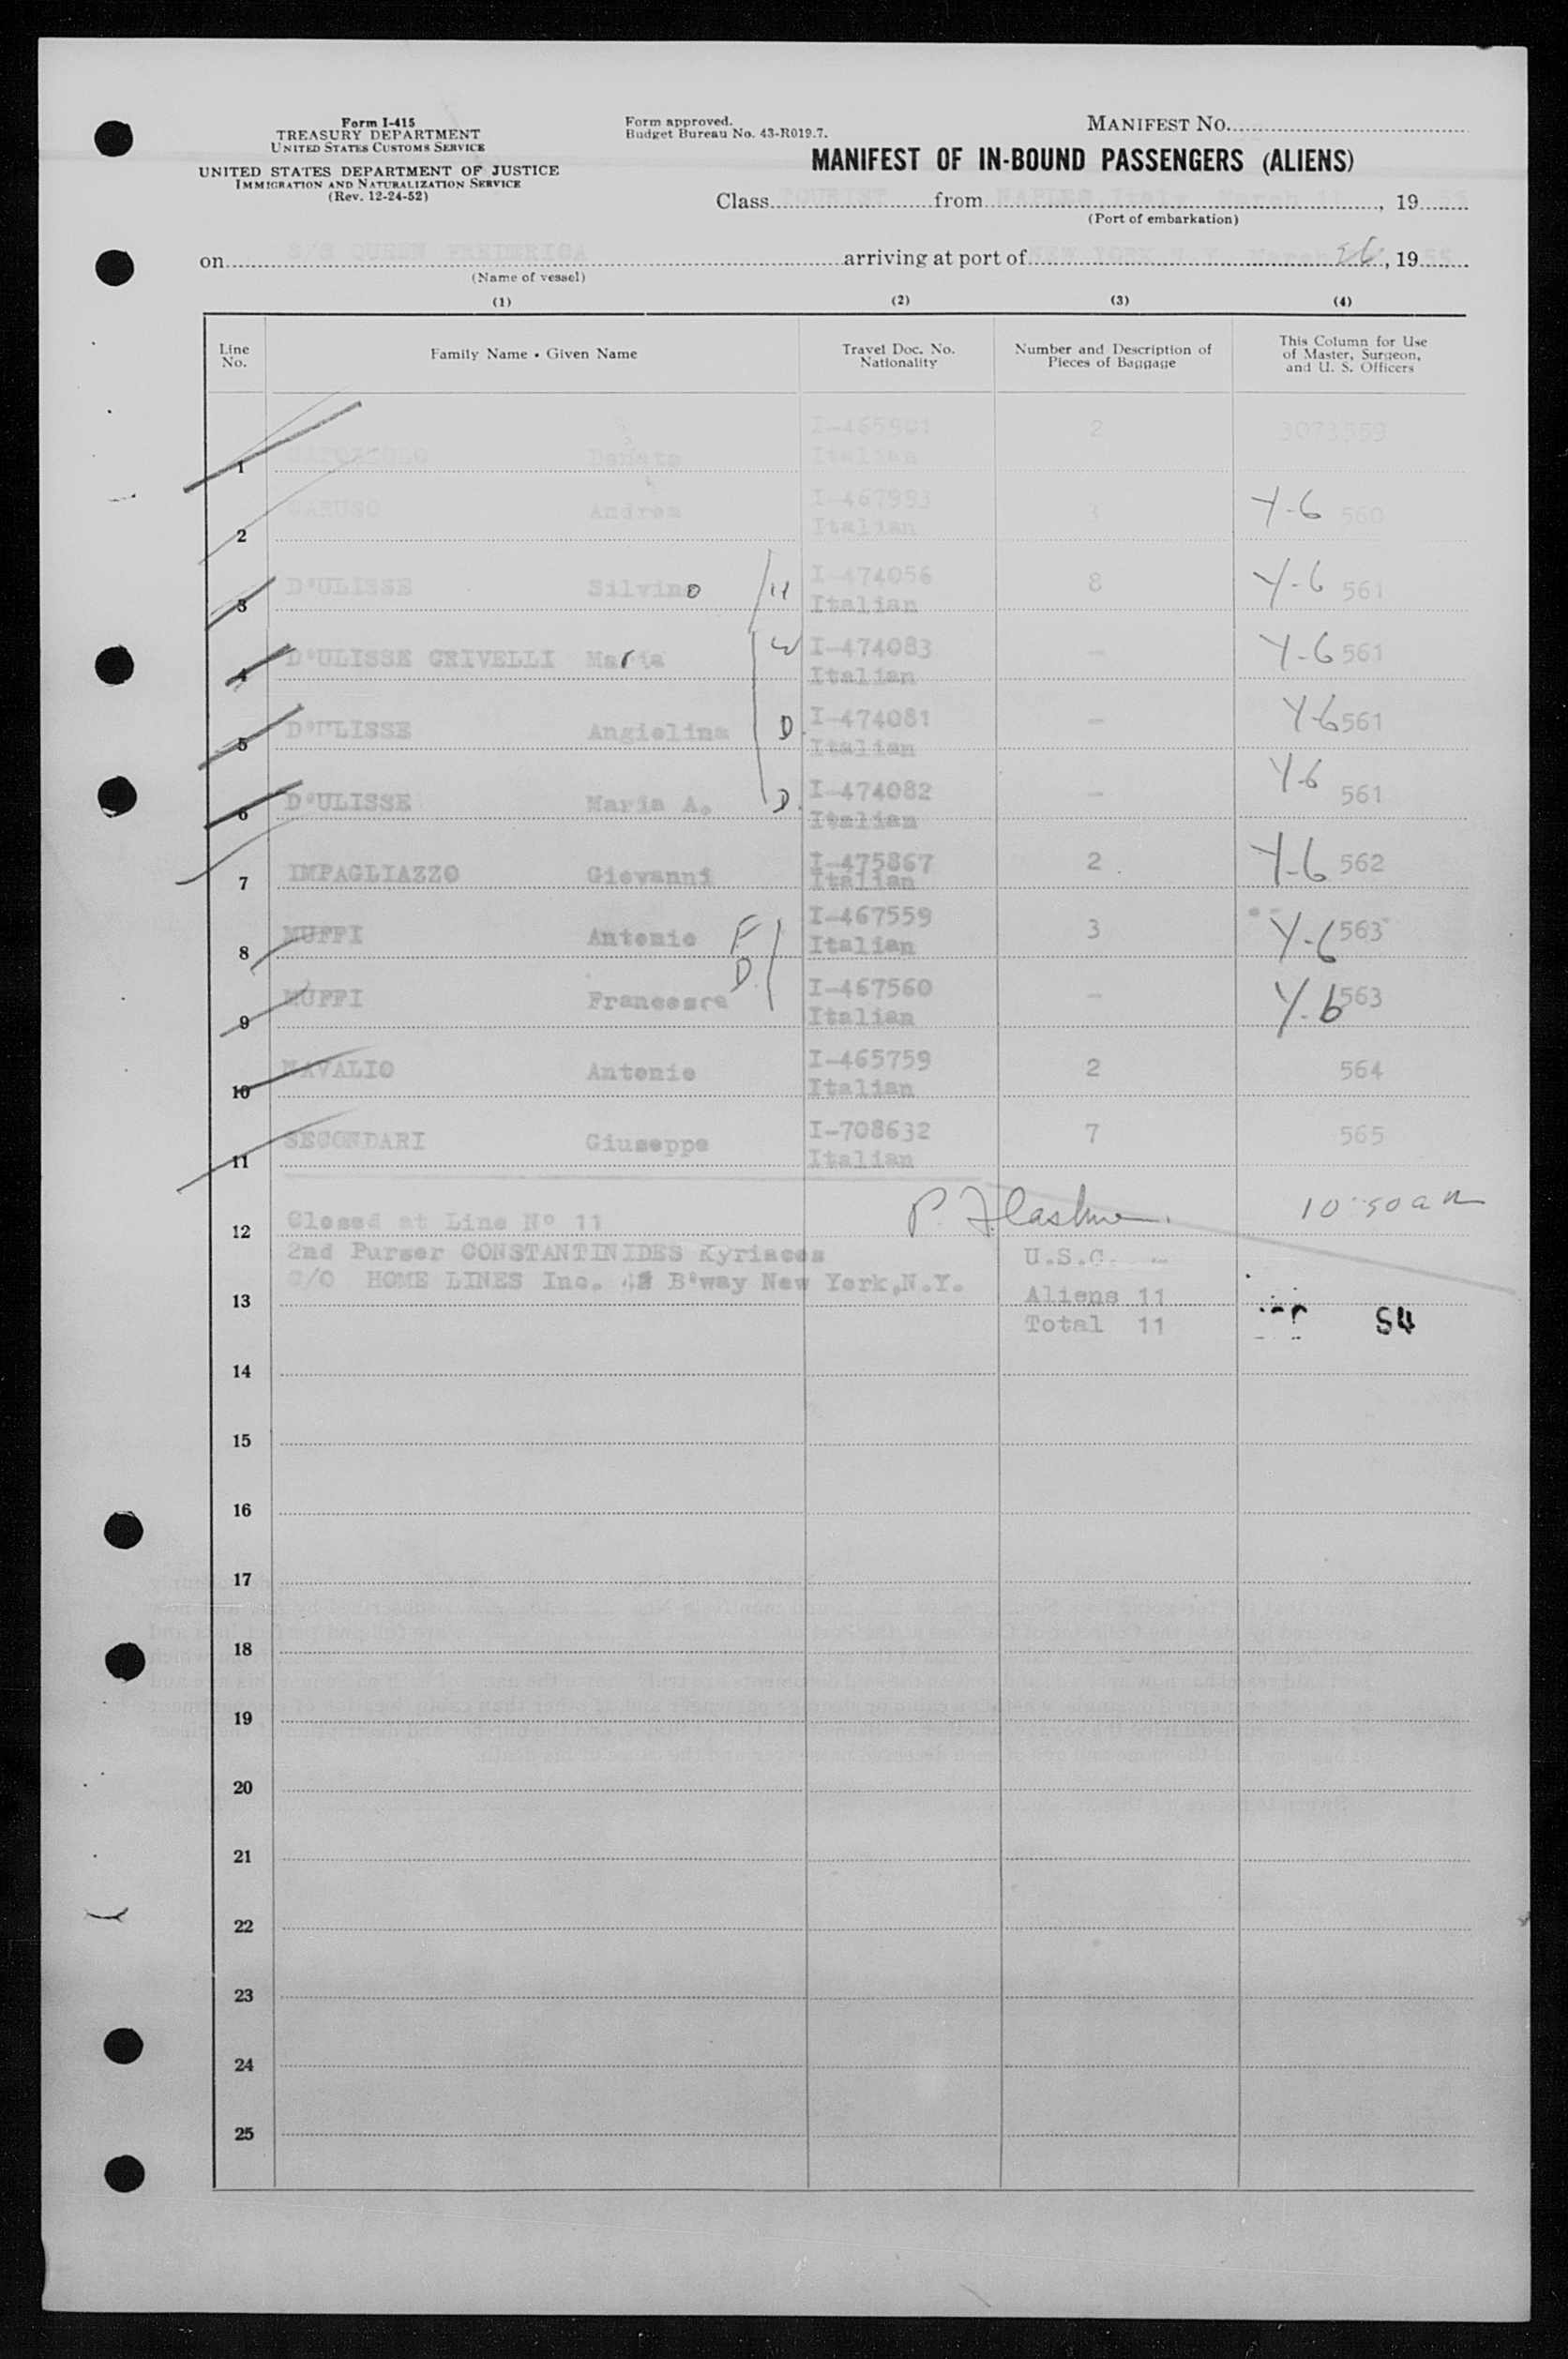 Form I-415
TREASURY DEPARTMENT
UNITED STATES CUSTOMS SERVICE
UNITED STATES DEPARTMENT OF JUSTICE
IMMIGRATION AND NATURALIZATION SERVICE
(Rev. 12-24-52)
Form approved.
Budget Bureau No. 43-R019.7.
MANIFEST NO.
MANIFEST OF IN-BOUND PASSENGERS (ALIENS)
Class TOURIST from NAPLES, March, 19
(Port of embarkation)
on S/S QUEEN FREDERICA arriving at port of NEW YORK 26, 1955
(Name of vessel)
(1) (2) (3) (4)
Line No. Family Name • Given Name Travel Doc. No. Nationality Number and Description of Pieces of Baggage This Column for Use of Master, Surgeon, and U. S. Officers
1 Donato I-465901 Italian 2
2 CARUSO Andrea I-467993 Italian 3 Y-6 560
3 D'ULISSE Silvino H I-474056 Italian 8 Y-6 561
4 D'ULISSE CRIVELLI Maria W I-474083 Italian - Y-6 561
5 D'ULISSE Angiolina D. I-474081 Italian - Y-6 561
6 D'ULISSE Maria A. D. I-474082 Italian - Y-6 561
7 IMPAGLIAZZO Giovanni I-475867 Italian 2 Y-6 562
8 MUFFI Antonio F I-467559 Italian 3 Y-6 563
9 MUFFI Francesca D. I-467560 Italian - Y-6 563
10 NAVALIO Antonio I-465759 Italian 2 564
11 SECONDARI Giuseppe I-708632 Italian 7 565
12 Closed at Line Nº 11 P. 10:50 am
2nd Purser CONSTANTINIDES Kyriacos U.S.C. -
C/O HOME LINES Inc. 42 B'way New York,N.Y.
13 Aliens 11
Total 11 S4
14
15
16
17
18
19
20
21
22
23
24
25